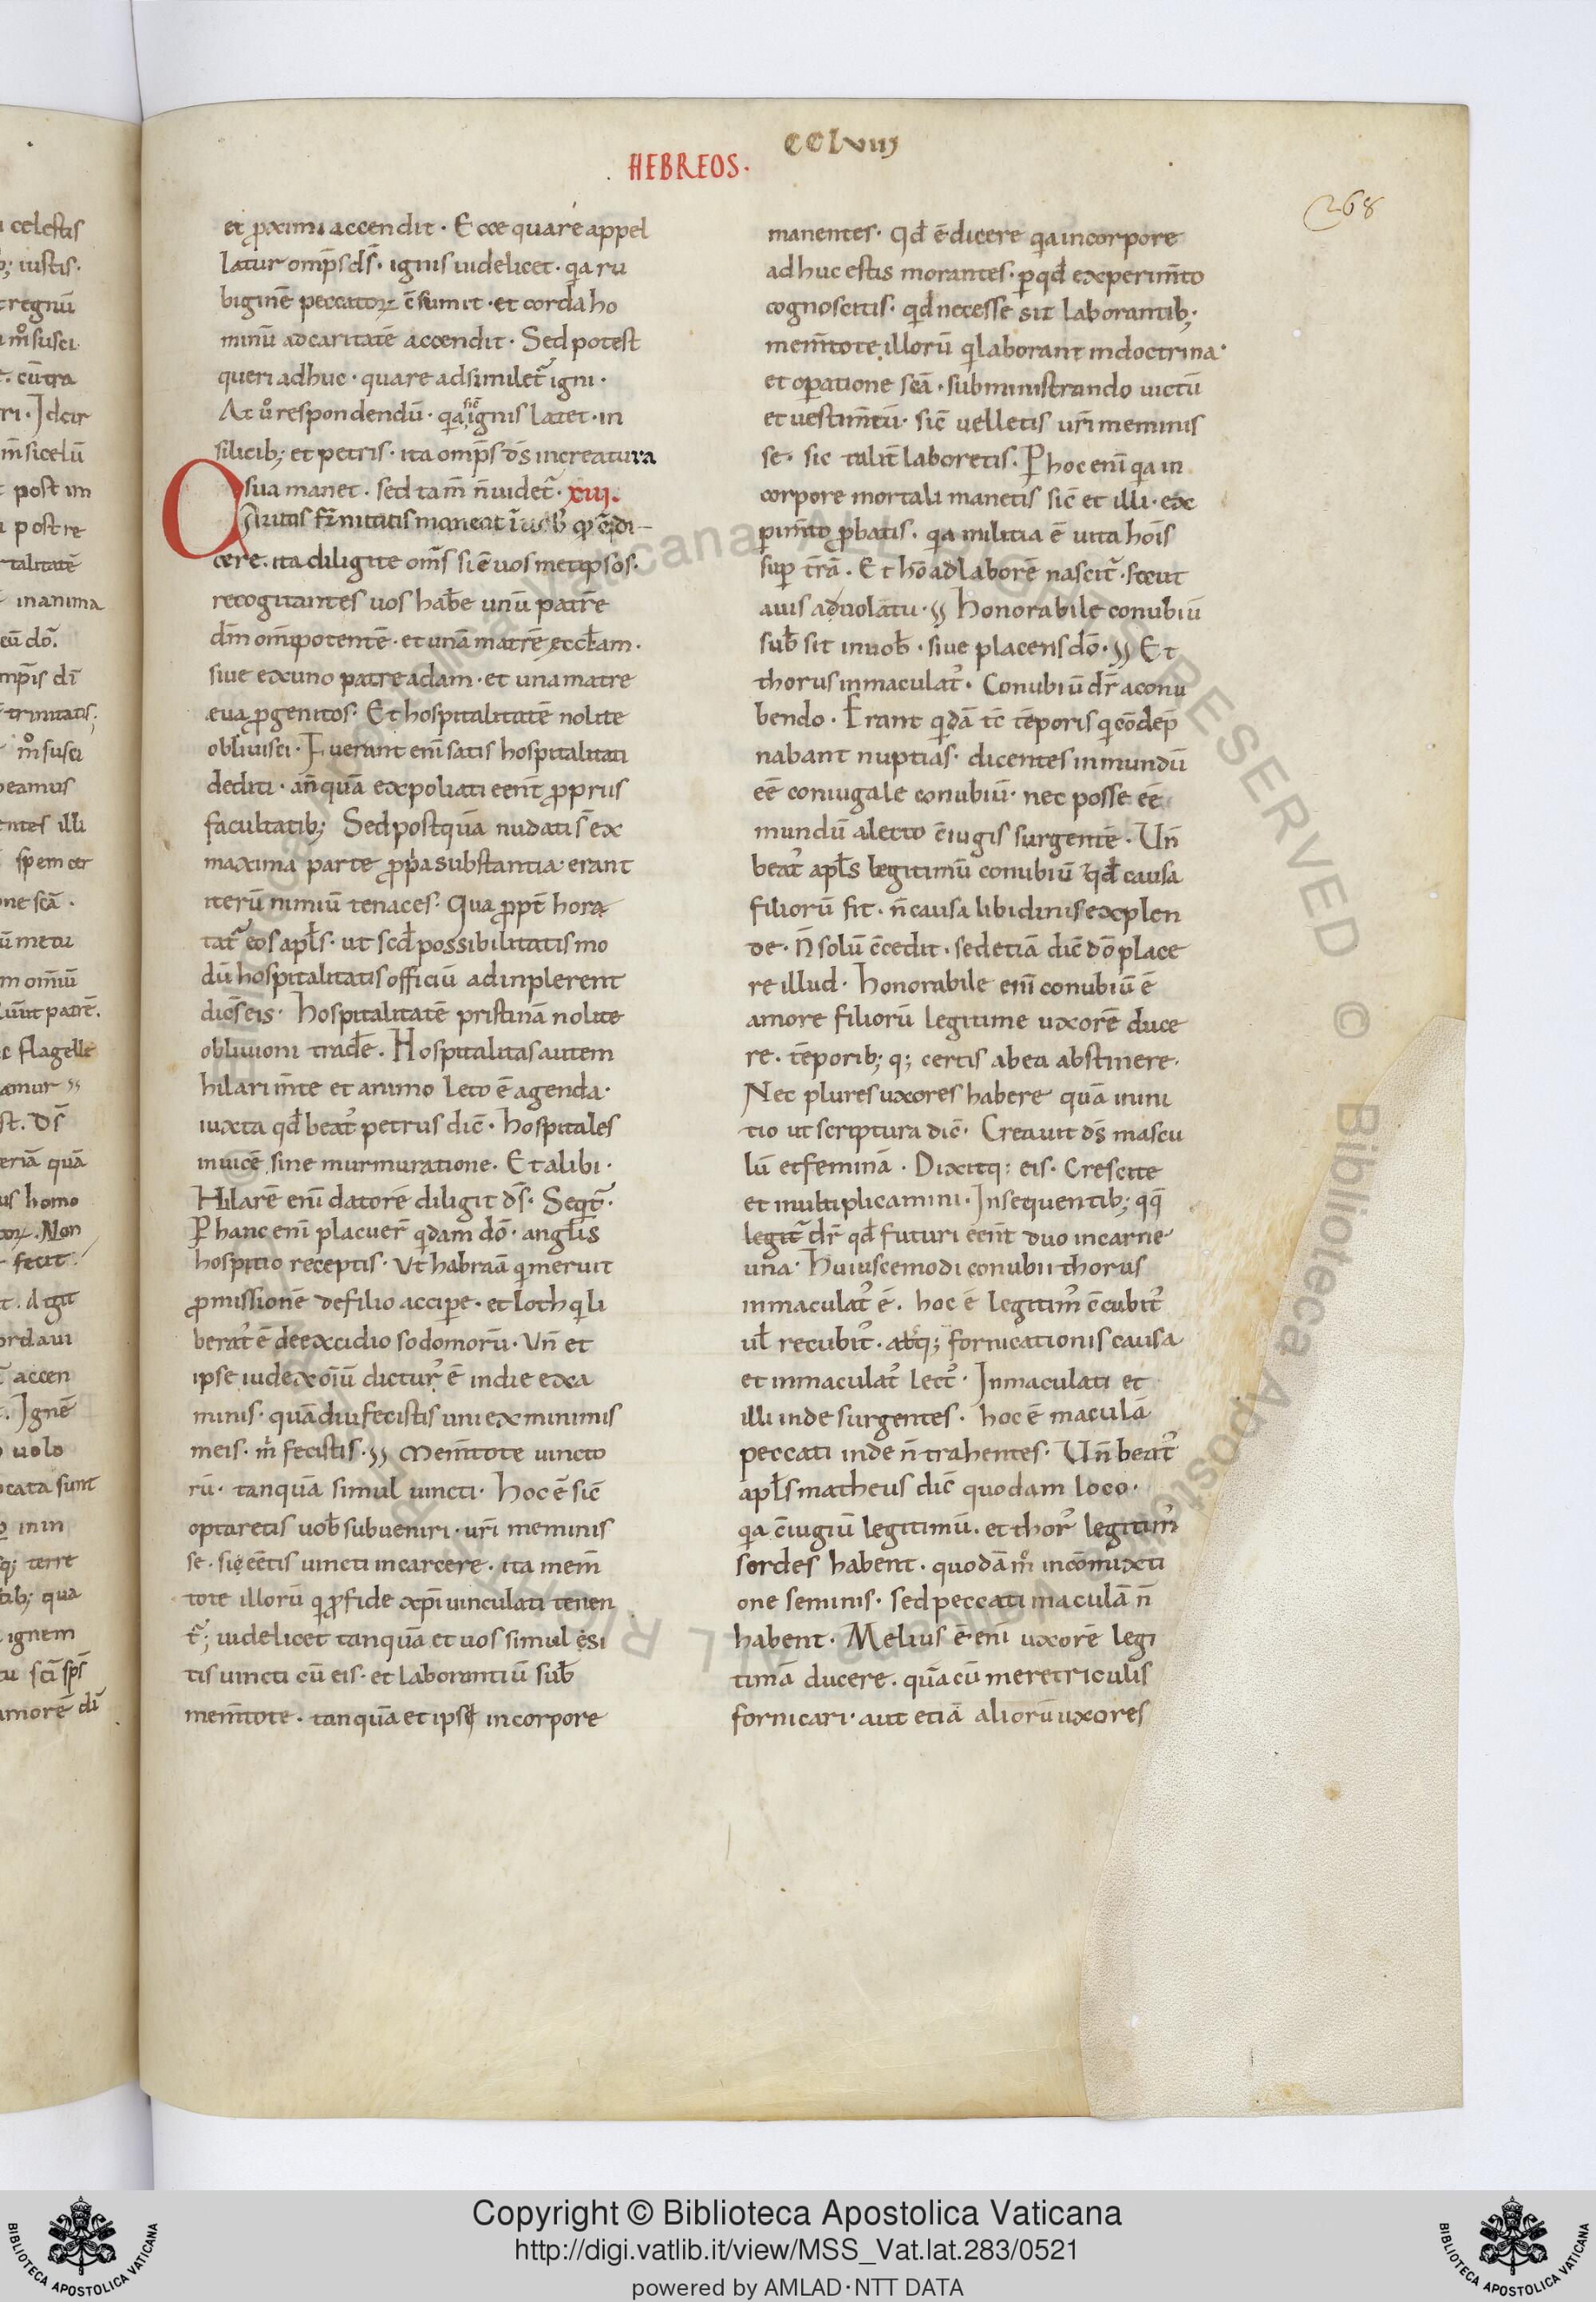 CCLVIIJ
HEBREOS·
268
et ꝓximi accendit· Ecce quare appel
latur omp̄s ds̄· ignis uidelicet· qͥa ru
biginē peccatoꝝ c̄sumit· et corda ho
minū ad caritatē accendit· Sed potest
queri adhuc· quare adsimilet᷑ igni·
At uͦ respondendū· qͥa sic̄ ignis latet· in
silicib; et petris· ita omp̄s ds̄ in creatura
sua manet· sed tam̄ n̄ uidet᷑· XIII.
Caritas fr̄nitatis maneat
cere. ita diligite om̄s sic̄ uos metipsos·
recogitantes uos hab̄e unū patrē
dm̄ om̄ipotentē· et unā matrē eccl̄am·
siue ex uno patre adam· et una matre
eua ꝓgenitos· Et hospitalitatē nolite
obliuisci· Fuerant eni̅ satis hospitalitati
dediti· an̄quā expoliati eent̄ ꝓpriis
facultatib; Sed postquā nudati s̄ ex
maxima parte ꝓpͥa substantia· erant
iterū nimiū tenaces· Qua ꝓpt̄ hora
tat᷑ eos apl̄s· ut scd̄ possibilitatis mo
dū hospitalitatis officiū adinplerent
dic̄s eis· Hospitalitatē pristinā nolite
obliuioni trad̄e. Hospitalitas autem
hilari m̄te et animo leto ē agenda·
iuxta qd̄ beatꝰ petrus dic̄· hospitales
inuicē sine murmuratione· Et alibi·
Hilarē eni̅ datorē diligit ds̄· Seqͥt᷑·
P hanc eni̅ placuer̄ qͥdam dō· angl̄is
hospitio receptis· Vt habraā qͥ meruit
ꝓmissionē de filio accipe· et loth qͥ li
beratꝰ ē de excidio sodomorū· Vn̄ et
ipse iudex oīū dicturꝰ ē in die exa
minis· quādiu fecistis uni ex minimis
meis· mͥ fecistis· Mem̄tote uincto
rū· tanquā simul uincti· Hoc ē sic̄
optaretis uob̄ subueniri· uri̅ meminis
se· si eētis uincti in carcere· ita mem̄
tote illorū qͥ ꝓ fide xpi̅ uinculati tenen
t᷑; uidelicet tanquā et uos simul esi
tis uincti cū eis· et laborantiū sub̄
mem̄tote· tanquā et ipsi in corpore
manentes· Qd̄ ē dicere qͥa in corpore
adhuc estis morantes· ꝑ qd̄ experim̄to
cognoscitis· qͥd necesse sit laborantib;
mem̄tote illorū qͥ laborant in doctrina·
et oꝑatione scā· subministrando uictū
et uestim̄tū· sic̄ uelletis uri̅ meminis
se· sic talit̄ laboretis· P hoc eni̅ qͥa in
corpore mortali manetis sic̄ et illi· ex
ꝑim̄to ꝓbatis· qͥa militia ē uita hoīs
suꝑ t̄rā· Et hō ad laborē nascit᷑· sicut
auis ad uolatu· Honorabile conubiū
sub̄ sit in uob̄· siue placens dō· Et
thorus inmaculatꝰ· Conubiū dr̄ a conu
bendo· Erant qͥdā tc̄ tēporis qͥ cōdēp
nabant nuptias· dicentes inmundū
eē coniugale conubiū· nec posse eē
mundū a lecto c̄iugis surgentē· Un̄
beatꝰ apl̄s legitimū conubiū qd̄ causa
filiorū fit· n̄ causa libidinis explen
de· n̄ solū c̄cedit· sed etiā dic̄ dō place
re illud· Honorabile eni̅ conubiū ē
amore filiorū legitime uxorē duce
re· tēporib; q; certis ab ea abstinere·
Nec plures uxores habere quā in ini
tio ut scriptura dic̄· Creauit ds̄ mascu
lū et feminā· Dixitq; eis· Crescite
et multiplicamini· Insequentib; qq̄
legit᷑ dr̄ qd̄ futuri eent̄ duo in carne
una· Huiuscemodi conubii thorus
inmaculatꝰ ē· hoc ē legitimꝰ c̄cubitꝰ
ul̄ recubitꝰ· absq; fornicationis causa
et inmaculatꝰ lectꝰ· Inmaculati et
illi inde surgentes· hoc ē maculā
peccati inde n̄ trahentes· Un̄ beatꝰ
apl̄s matheus dic̄ quodam loco·
qͥa c̄iugiū legitimū· et thorꝰ legitimꝰ
sordes habent· quodā mͦ in cōmixti
one seminis· sed peccati maculā n̄
habent· Melius ē eni̅ uxorē legi
timā ducere· quā cū meretriculis
fornicari· aut etiā aliorū uxores
Copyright © Biblioteca Apostolica Vaticana
http://digi.vatlib.it/view/MSS_Vat.lat.283/0521
powered by AMLAD·NTT DATA
BIBLIOTECA APOSTOLICA VATICANA
BIBLIOTECA APOSTOLICA VATICANA